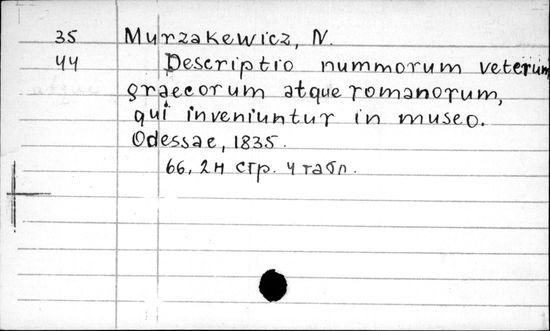 35 Murzakewicz, N.
44 Descriptio nummorum veterum
graecorum atque romanorum,
qui inveniuntur in museo.
Odessae, 1835.
66, 2н стр. 4 табл.